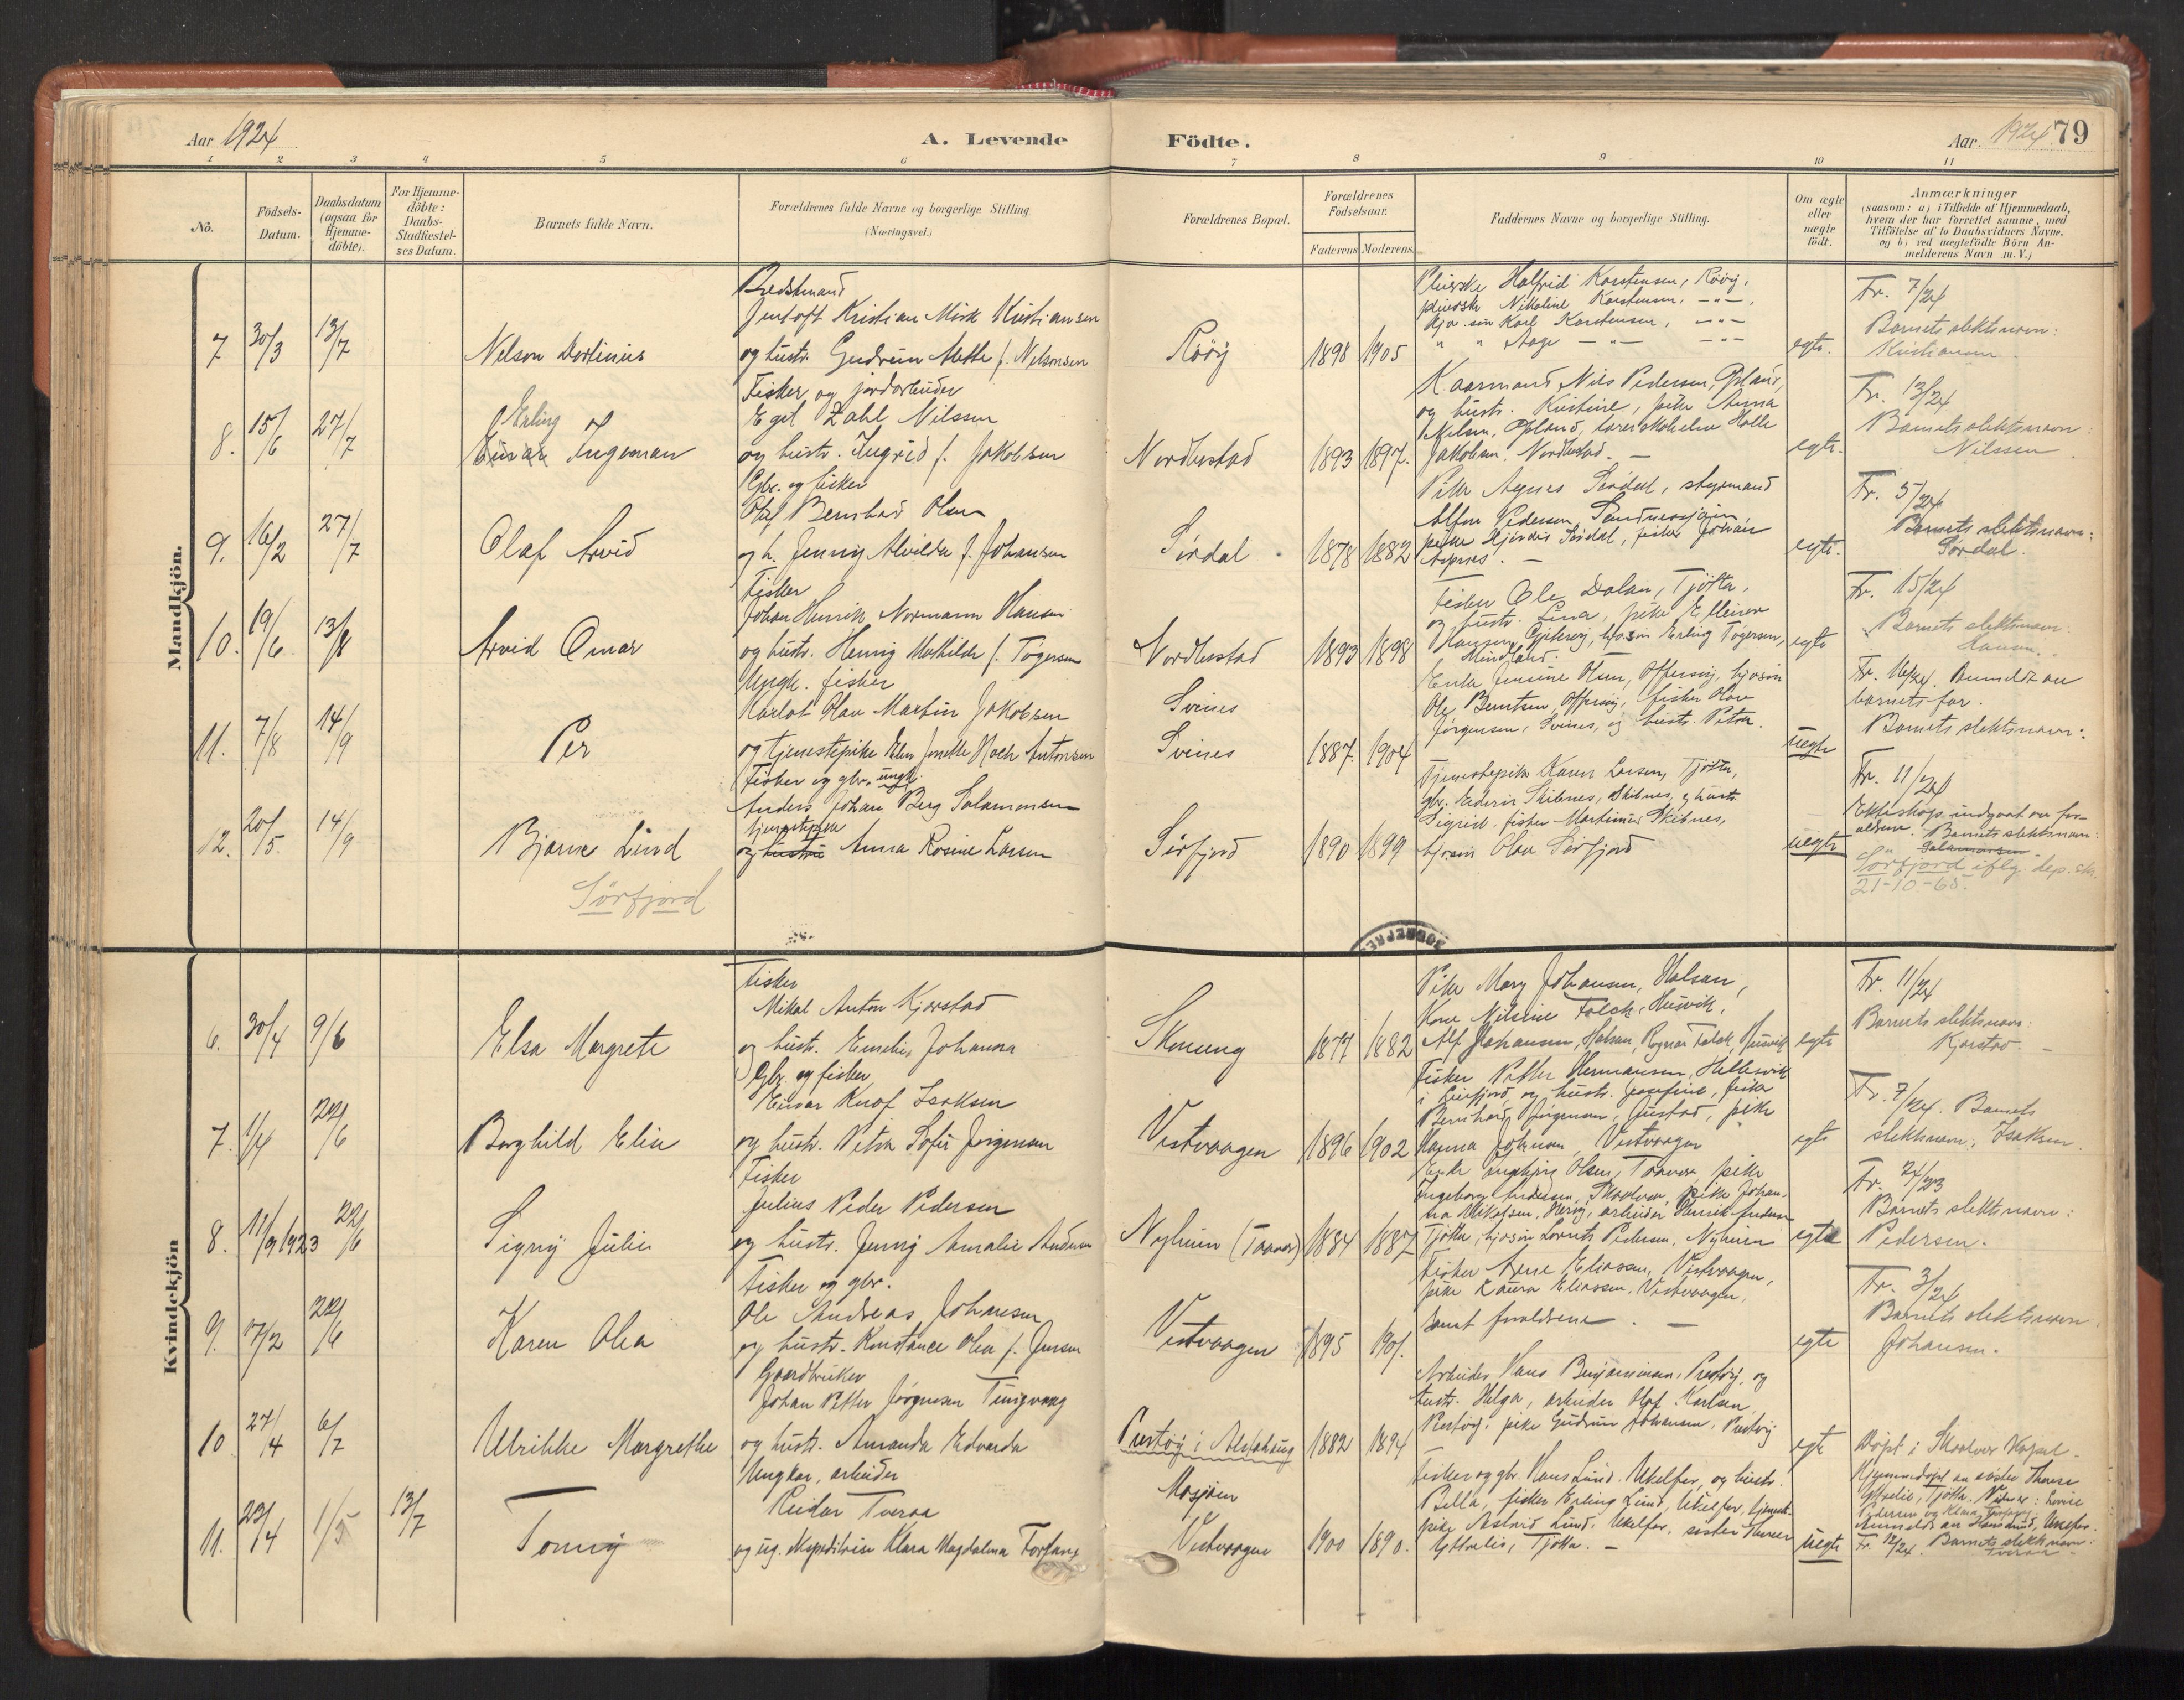 Aar 1924
A. Levende Födte.
Aar 1924 79
1 2 3 4 5 6 7 8 9 10 11
No.
Födsels-Datum.
Daabsdatum (ogsaa for Hjemme-döbte).
For Hjemme-döbte: Daabs-Stadfæstel-ses Datum.
Barnets fulde Navn.
Forældrenes fulde Navne og borgerlige Stilling
(Næringsvei.)
Forældrenes Bopæl.
Forældrenes Födselsaar.
Faderens Moderens
Faddernes Navne og borgerlige Stilling.
Om ægte eller uægte födt.
Anmærkninger
(saasom: a) i Tilfælde af Hjemmedaab, hvem der har forrettet samme, med Tilföielse af to Daabsvidners Navne, og b) ved uægtefödte Börn An-melderens Navn m. V.)
Mandkjön.
7 30/3 13/7
Nelson Dortinius
Jentoft Kristian Mørk Kristiansen
og hustr. Gudrun Alette f. Nilsonsen
Rööy
1898 1905
Karstensen, Rööy,
Nikoline Karstensen, -"-
Karl Karstensen, -"-
" " Aage -"- -"-
egte.
Fr. 7/24
Barnets slektsnavn:
Kristiansen
8. 15/6 27/7
Erling
Einar Ingeman
Fisker og jordarbeider
Egil Zahl Nilssen
og hustr. Ingrid f. Jakobsen
Nordbustad
1893 1897.
Nils Pedersen,
og hustr. Kristine, pike Anna
Jakobsen. Nordbustad. -
egte.
Fr. 13/24
Barnets slektsnavn:
Nilssen
9. 16/2 27/7
Olaf Arvid
Gbr. og fisker
Olaf Bernhard Olsen
og h. Jenny Alvilda f. Johansen
Sördal
1878 1882
Pike Agnes Sördal, styrmand
Pedersen, Sandnessjöen,
pike Hjördis Sördal, fisker Johan
egte.
Fr. 5/24
Barnets slektsnavn:
Sördal.
10. 19/6 13/8
Arvid Omar
Fisker
Johan Henrik Normann Hansen
og hustr. Henny Mathilde f. Tögersen
Nordbustad
1893 1898
Fisker Ole Dalan, Tjötta,
og hustr. Lina, pike
Hansen, Erling Tögersen,
Mindland.
egte
Fr. 15/24
Barnets slektsnavn:
Hansen.
11. 7/8 14/9
Per
Ungk. fisker
Karlot Olav Martin Jakobsen
og tjenestepike Elen Jonette Hoch Antonsen
Svines
Svines
1887. 1904
Enke Jensine Olsen, Offersöy,
Ole Berntsen, Offersöy, fisker Olav
Jørgensen, Svines, og hustr. Petra.
uegte
Fr. 16/24. Anmeldt av
barnets far.
Barnets slektsnavn:
12. 20/5 14/9
Bjarne Lind
Sörfjord
Fisker og gbr. ungk.
Anders Johan Berg Salamonsen
tjenestepike
og hustru Anna Rosine Larsen
Sörfjord
1890 1899
Tjenestepike Karen Larsen, Tjötta,
gbr. Skibnes, Skibnes, og hustr.
Sigrid, fisker Martinius Skibnes,
Olav Sörfjord
uegte
Fr. 11/24
Ekteskap indgaat av for-
ældrene. Barnets slektsnavn:
Salamonsen
Sörfjord iflg. dep. skr.
21-10-65.
Kvindekjön
6. 30/4 9/6
Elsa Margrete
Fisker
Mikal Anton Kjørstad
og hustr. Emelie Johanna
Skonseng
1877 1882
Pike Mary Johansen, Halsan,
Kone Nilsine Falch, Husvik,
Alf Johansen, Halsan, Ragnar Falch, Husvik
egte
Fr. 11/24
Barnets slektsnavn:
Kjørstad. -
7. 1/4 22/6
Borghild Elise
Gbr. og fisker
Einar Knof Isaksen
og hustr. Petra Sofie Jørgensen
Vestvaagen
1896 1902
Fisker Petter Hermansen, Hellesvik
i Leirfjord, og hustr. Josefine, fisker
Bernhard Jørgensen, pike
Vestvaagen
egte
Fr. 7/24. Barnets
slektsnavn: Isaksen.
8. 11/9 1923 22/6
Signy Julie
Fisker
Julius Peder Pedersen
og hustr. Jenny Amalie Andersen
Nyheim (Taavær)
1884 1887
Enke Olsen, Taavær, pike
Ingeborg Andersen, Skaalvær, pike Johan-
na Mikalsen, arbeider Henrik Andersen
Tjötta, Pedersen, Nyheim
egte
Fr. 24/23
Barnets slektsnavn:
Pedersen.
9. 17/2 22/6
Karen Olea
Fisker og gbr.
Ole Andreas Johansen
og hustr. Konstance Olea f. Jensen
Vestvaagen
1895 1901.
Fisker Arne Eliassen, Vestvaagen,
pike Laura Eliassen, Vestvaagen,
samt forældrene. -
egte
Fr. 3/24
Barnets slektsnavn:
Johansen.
10 27/4 6/7
Ulrikke Margrethe
Gaardbruker
Johan Petter Jørgensen Tingvaag
og hustr. Amanda Edvarda
Prestöy i Alstahaug
1882 1894
Arbeider Hans Benjaminsen, Prestöy, og
hustr. Helga, arbeider Karlsen,
Prestöy, pike Gudrun Johansen, Prestöy
egte
Döpt i Skaalvær Kapel.
11. 23/4 1/5 13/7
Tonny
Ungkar, arbeider
Reidar Tveraa
og ug. ekspeditrise Klara Magdalena Forfang
Mosjöen
Vestvaagen
1900 1890.
Fisker og gbr. Hans Lund, Ukelfar, og hustr.
Bella, fisker Erling Lund, Ukelfar, tjeneste-
pike Astrid Lund, Ukelfar, søster
Tjötta. -
uegte
Hjemmedöpt av søster Therese
Tjötta.
Anmeldt av Hans Lund, Ukelfar.
Fr. 12/24. Barnets slektsnavn:
Tveraa